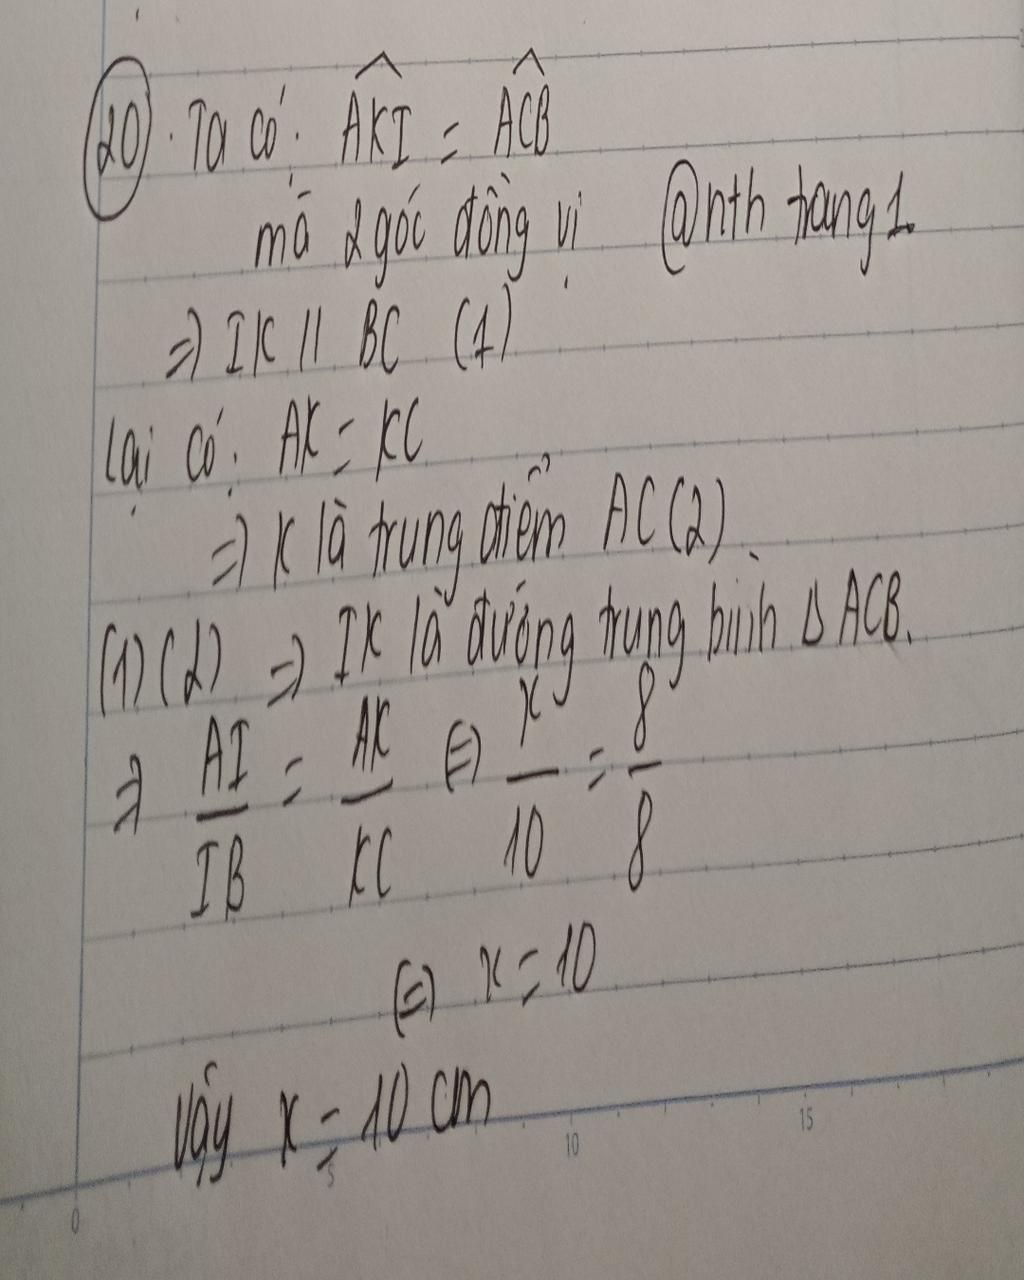 20. Ta có: AKI = ACB
mà 2 góc đồng vị @nth trang1.
=> IK // BC (1)
Lại có: AK = KC
=> K là trung điểm AC (2).
(1) (2) => IK là đường trung bình Δ ACB.
=> AI/IB = AK/KC <=> x/10 = 8/8
<=> x = 10
Vậy x = 10 cm
0 5 10 15